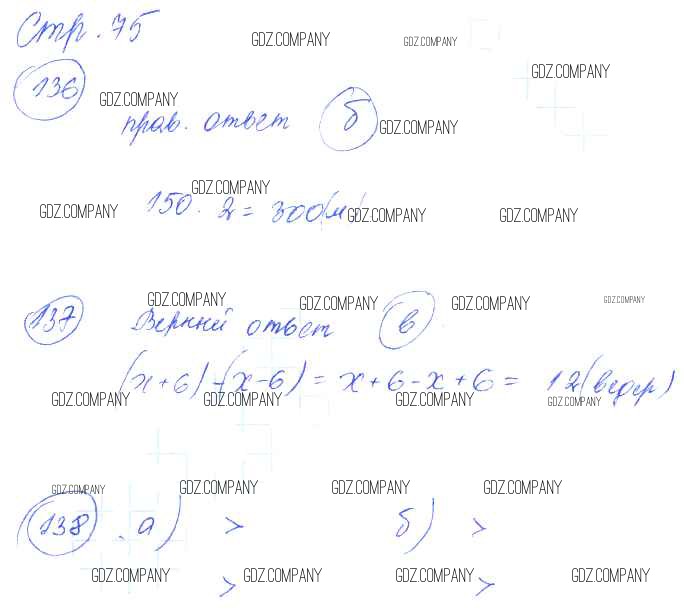 Стр. 75
GDZ.COMPANY GDZ.COMPANY
GDZ.COMPANY
136
GDZ.COMPANY
прав. ответ б
GDZ.COMPANY
GDZ.COMPANY
150 · 2 = 300 (м)
GDZ.COMPANY GDZ.COMPANY GDZ.COMPANY
GDZ.COMPANY GDZ.COMPANY GDZ.COMPANY GDZ.COMPANY
137 Верный ответ в
(x+6)-(x-6) = x+6-x+6 = 12 (ведер)
GDZ.COMPANY GDZ.COMPANY GDZ.COMPANY GDZ.COMPANY
GDZ.COMPANY GDZ.COMPANY GDZ.COMPANY GDZ.COMPANY
138. а) > б) >
GDZ.COMPANY GDZ.COMPANY GDZ.COMPANY GDZ.COMPANY
> >